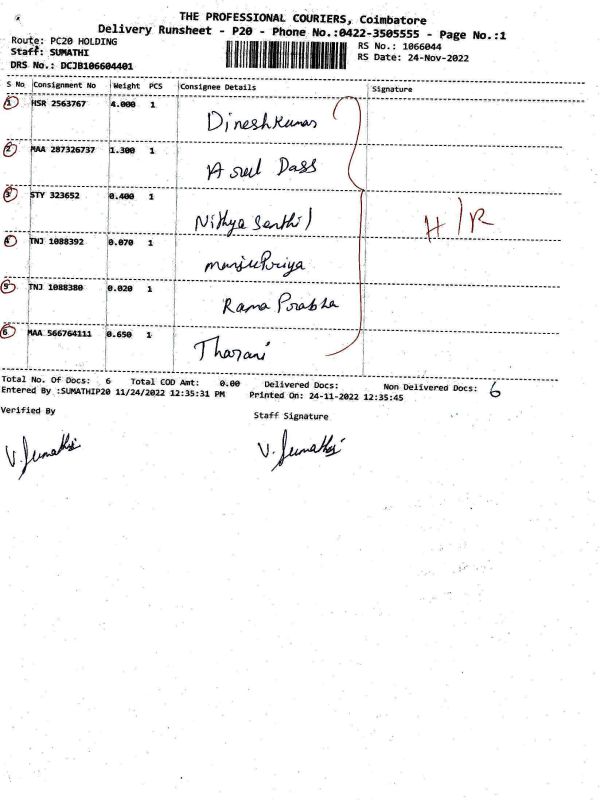 THE PROFESSIONAL COURIERS, Coimbatore
Delivery Runsheet - P20 - Phone No.:0422-3505555 - Page No.:1
Route: PC20 HOLDING
RS No.: 1066044
Staff: SUMATHI
RS Date: 24-Nov-2022
DRS No.: DCJB106604401
S No Consignment No Weight PCS Consignee Details Signature
1 HSR 2563767 4.000 1 Dineshkumar
2 MAA 287326737 1.300 1 Arul Dass
3 STY 323652 0.400 1 Nithya Senthil
H/R
4 TNJ 1088392 0.070 1 manju Priya
5 TNJ 1088380 0.020 1 Rama Prabha
6 MAA 566764111 0.650 1 Tharani
Total No. Of Docs: 6 Total COD Amt: 0.00 Delivered Docs: Non Delivered Docs: 6
Entered By :SUMATHIP20 11/24/2022 12:35:31 PM Printed On: 24-11-2022 12:35:45
Verified By Staff Signature
V. Sumathi V. Sumathi